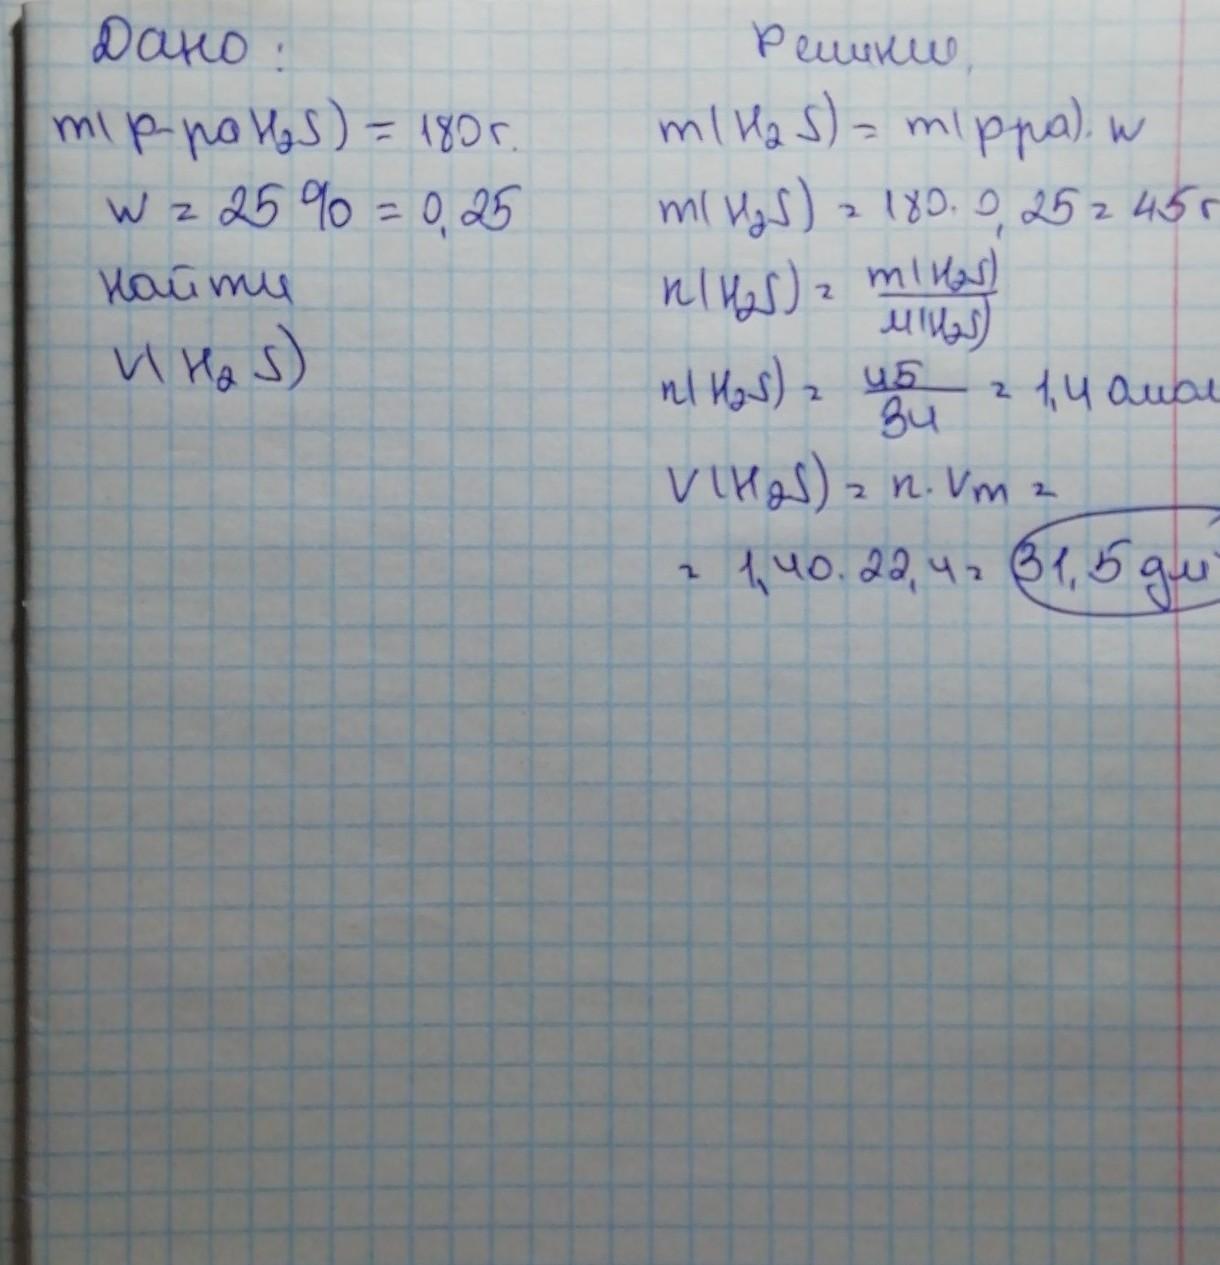 Дано:
m(р-ра H2S) = 180г.
w = 25 % = 0,25
Найти
V(H2S)
Решние,
m(H2S) = m(рра)·w
m(H2S) = 180·0,25 = 45г
n(H2S) = m(H2S)/M(H2S)
n(H2S) = 45/34 = 1,40мол
V(H2S) = n·Vm =
= 1,40·22,4 = 31,5 дм